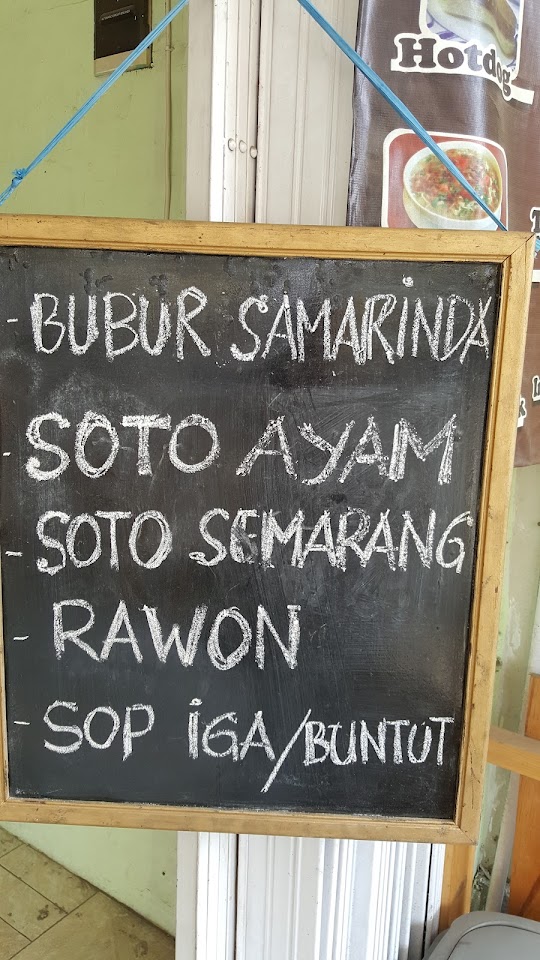 Hotdog
- BUBUR SAMARINDA
- SOTO AYAM
- SOTO SEMARANG
- RAWON
- SOP IGA/BUNTUT